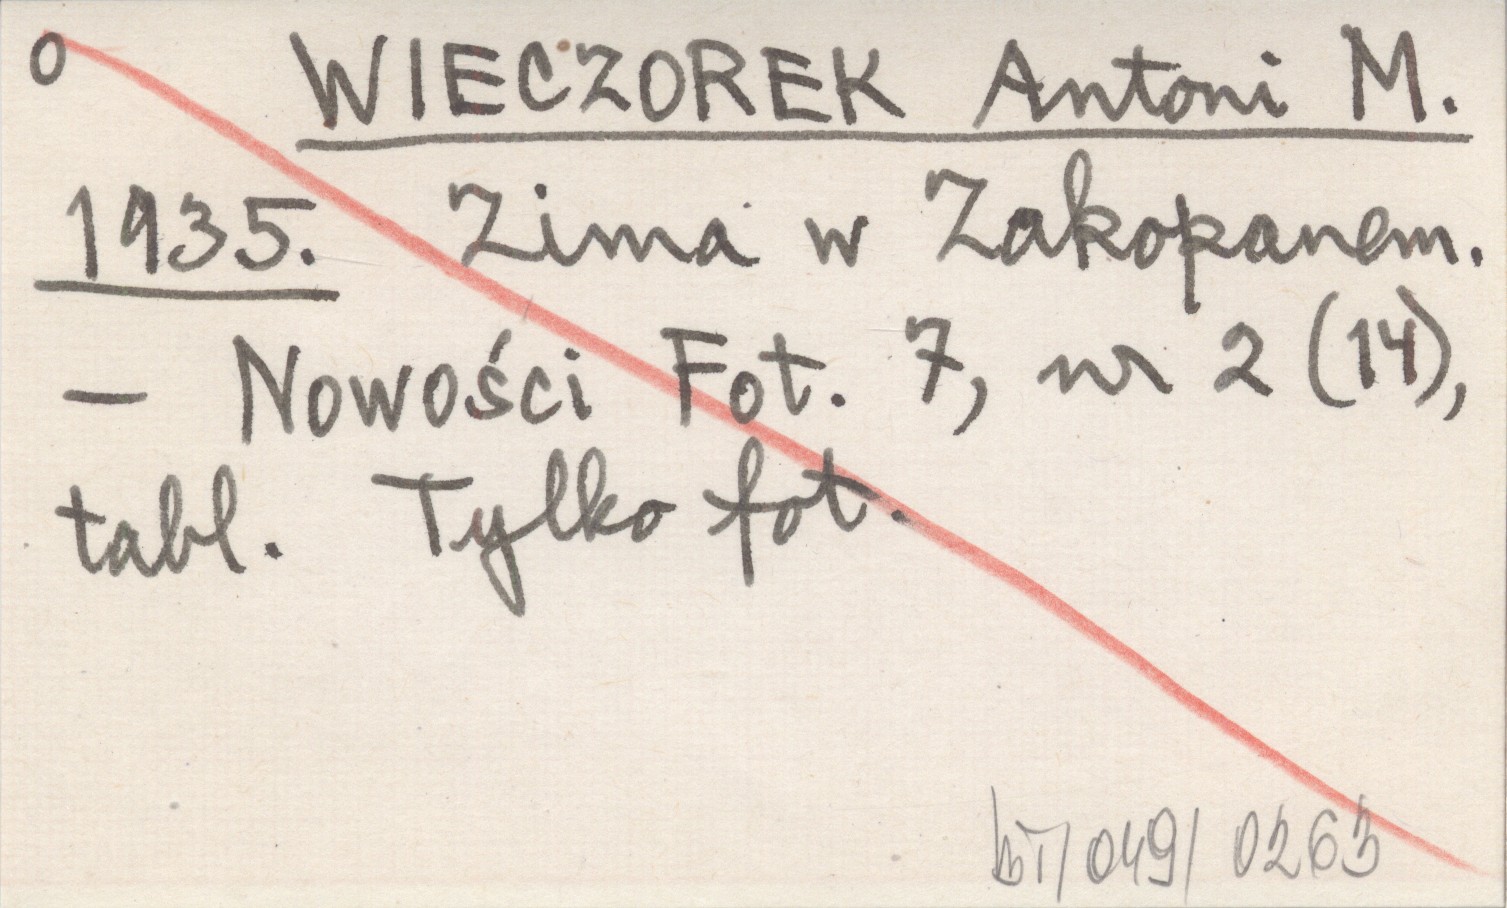 o WIECZOREK Antoni M.
1935. Zima w Zakopanem.
– Nowości Fot. 7, nr 2 (14),
tabl. Tylko fot.
bT/049/0263